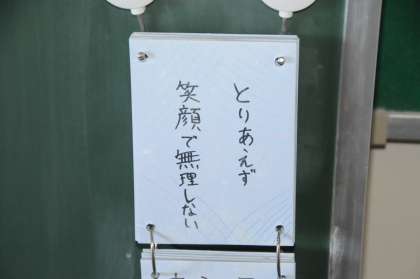 とりあえず
笑顔で無理しない